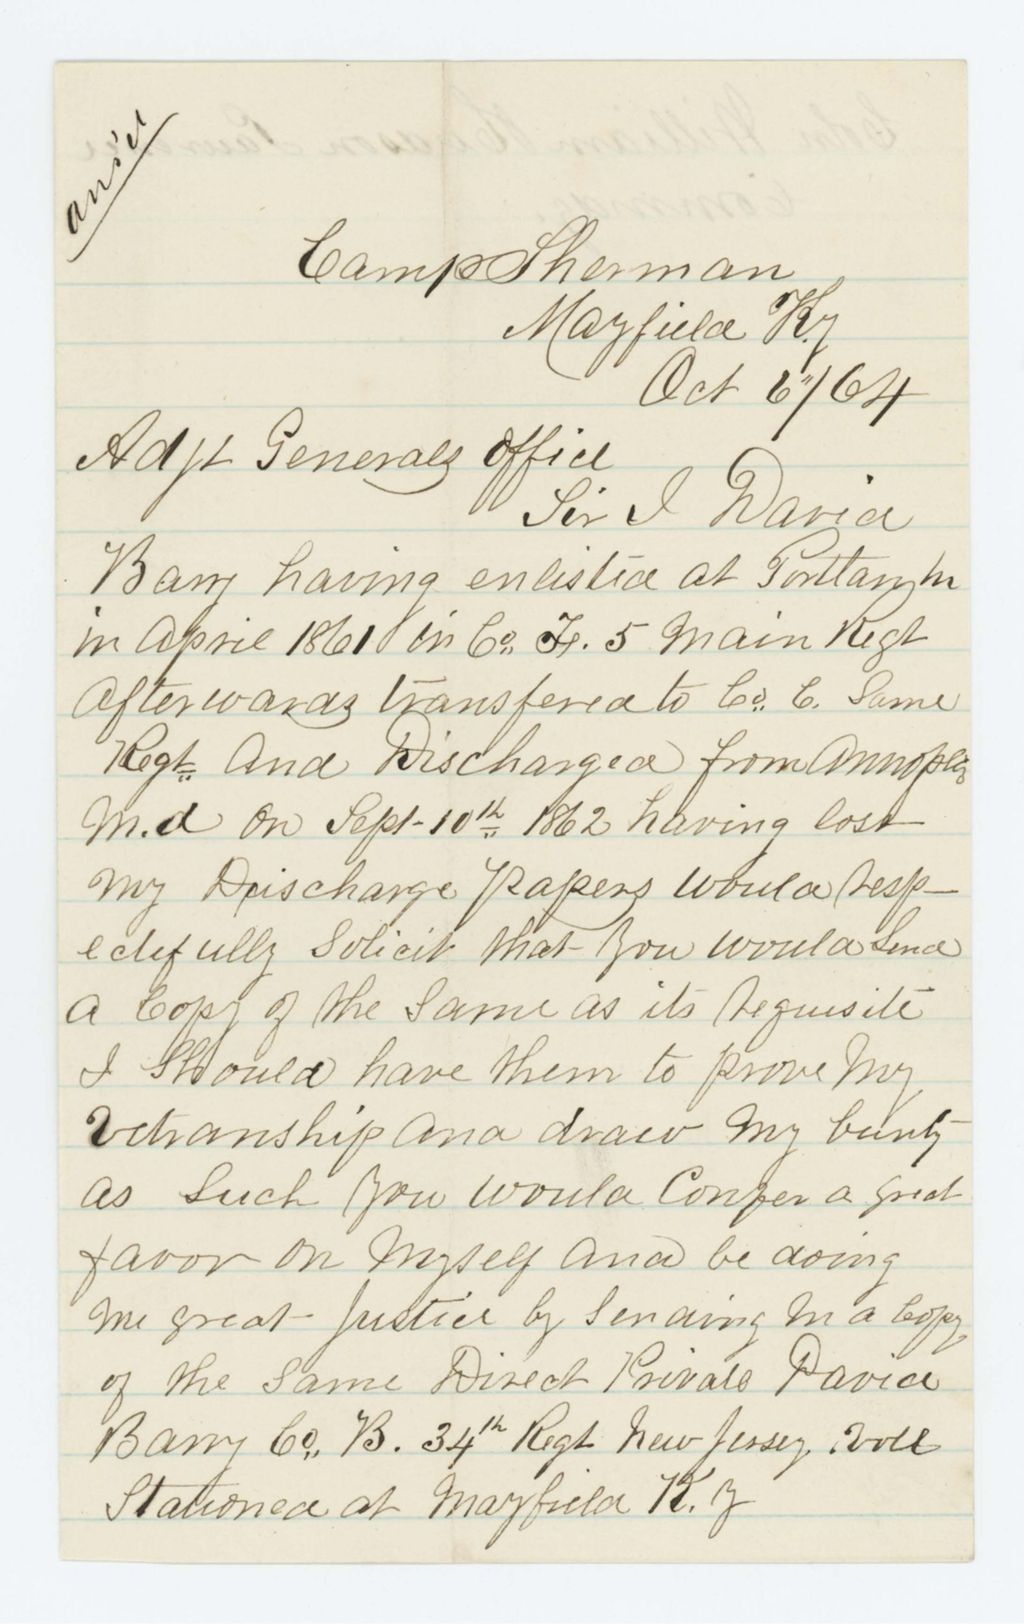 ans'd
Camp Sherman
Mayfield Ky
Oct 6"/64
Adjt Generals Office
Sir I David
Barry having enlisted at
in April 1861 in Co. F. 5 Main Regt
Afterwards transfered to Co. C. Same
Regt And Discharged from Annoplis
M.d On Sept 10th 1862 having lost
My Discharge Papers would resp-
ectefully Solicit that you would Send
a Copy of the Same as its requisite
I Should have them to prove My
Vetranship And draw My bunty
as Such you would Confer a great
favor on Myself And be doing
Me great Justice by Sending M a Copy
of the Same Direct Private David
Barry Co. B. 34th Regt New Jersey Voll
Stationed at Mayfield K.y